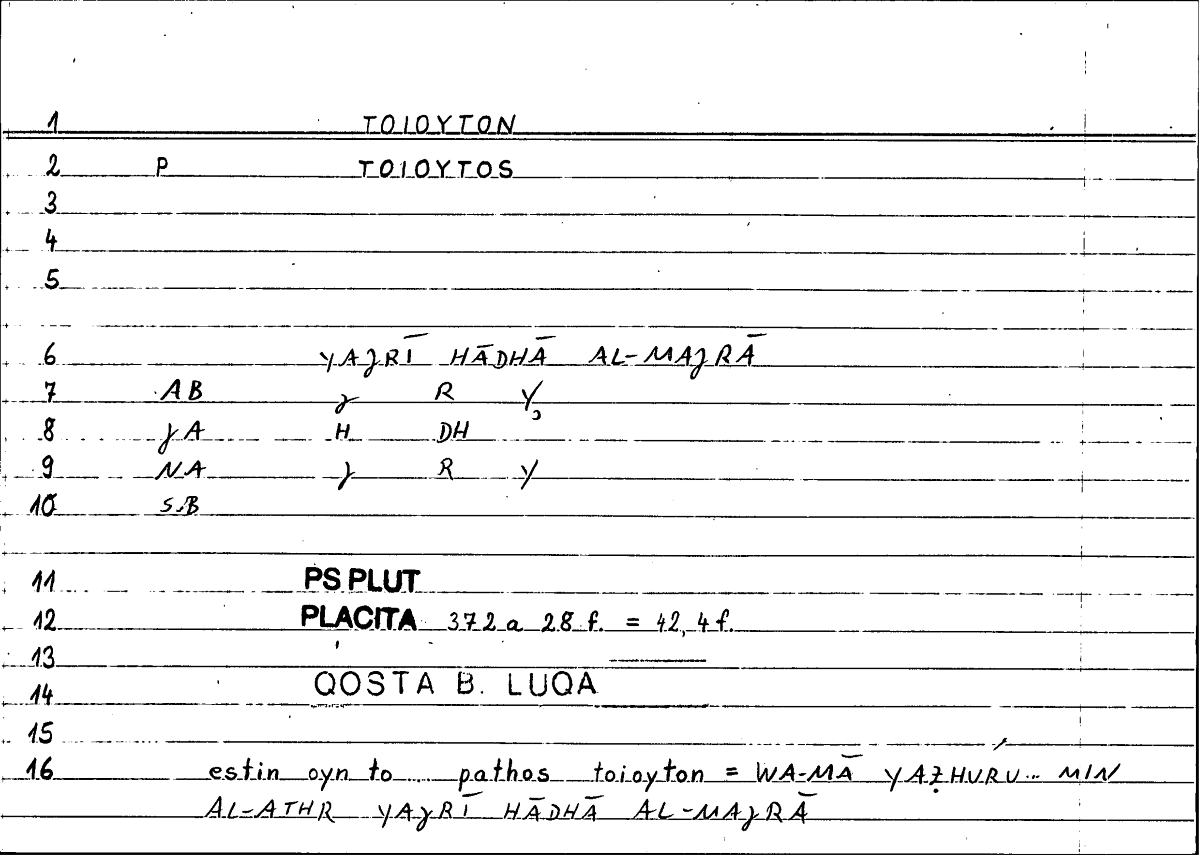 1 TOIOYTON
2 P TOIOYTOS
3
4
5
6 YAJRĪ HĀDHĀ AL-MAJRĀ
7 AB J R Y
8 JA H DH
9 NA J R Y
10 S.B
11 PS PLUT
12 PLACITA 372 a 28 f. = 42, 4 f.
13
14 QOSTA B. LUQA
15
16 estin oyn to... pathos toioyton = WA-MĀ YAẒHURU... MIN
AL-ATHR YAJRĪ HĀDHĀ AL-MAJRĀ